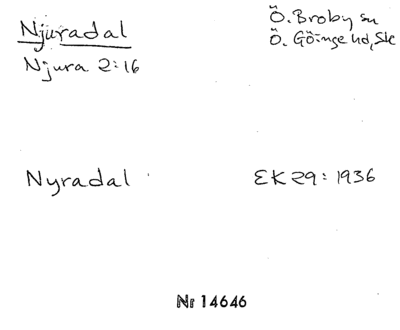 Njuradal
Ö. Broby sn
Ö. Göinge hd, Sk
Njura 2:16
Nyradal
EK 29: 1936
Nr 14646